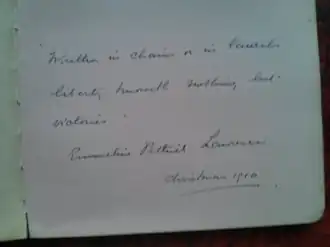 "Whether in chains or in laurels
liberty knoweth nothing but
victories"
Emmeline Pethick Lawrence
Christmas 1910